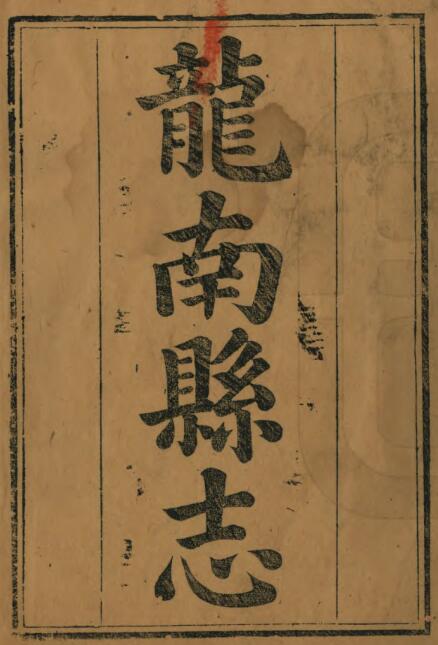 龍南縣志